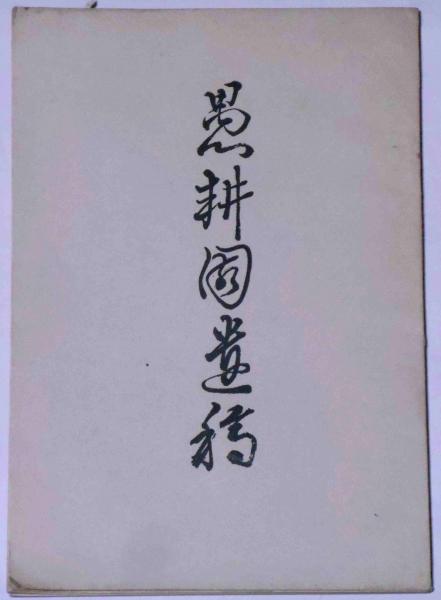 愚耕園遺稿